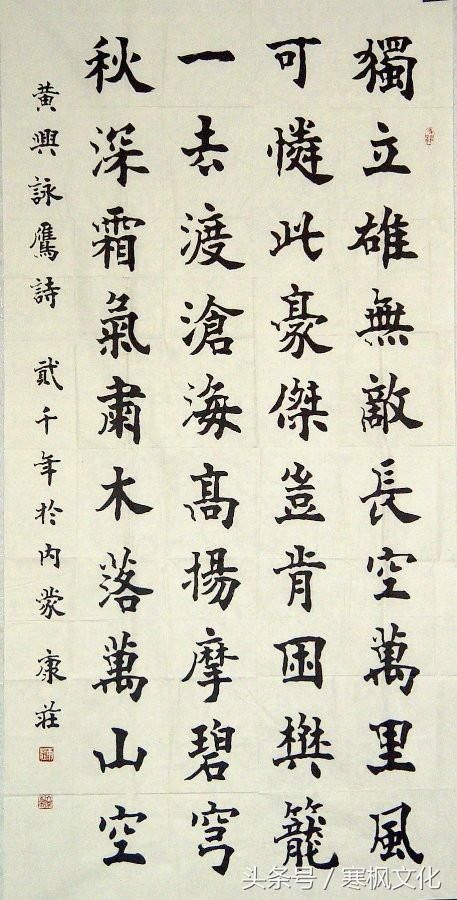 獨立雄無敵長空萬里風
可憐此豪傑豈肯困樊籠
一去渡滄海高揚摩碧穹
秋深霜氣肅木落萬山空
黃興詠鷹詩 貳千年於内蒙 康莊
头条号 / 寒枫文化